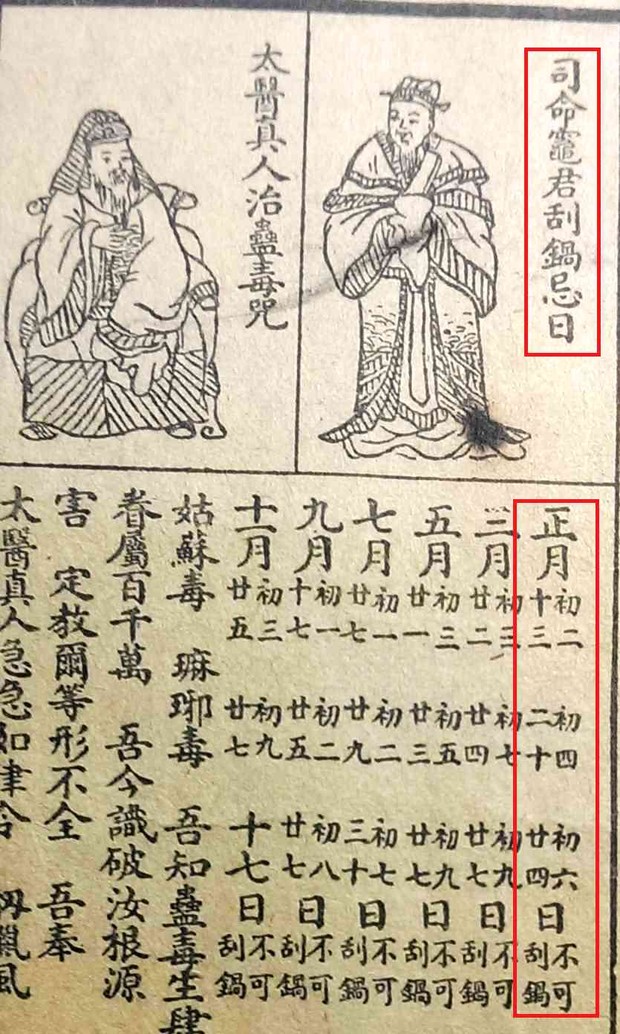 司命竈君刮鍋忌日
太醫真人治蠱毒咒
正月初二十三 初四二十 初六廿四日不可刮鍋
三月初三廿二 初七廿四 初九廿七日不可刮鍋
五月初三廿一 初五廿三 初九廿七日不可刮鍋
七月初一廿七 初二廿九 初七三十日不可刮鍋
九月初一十七 初二廿五 初八廿七日不可刮鍋
十一月初三廿五 初九廿七 十七日不可刮鍋
姑蘇毒 琊毒 吾知蠱毒生肆
眷屬百千萬 吾今識破汝根源
害 定教爾等形不全 吾奉
太醫真人急急如律令